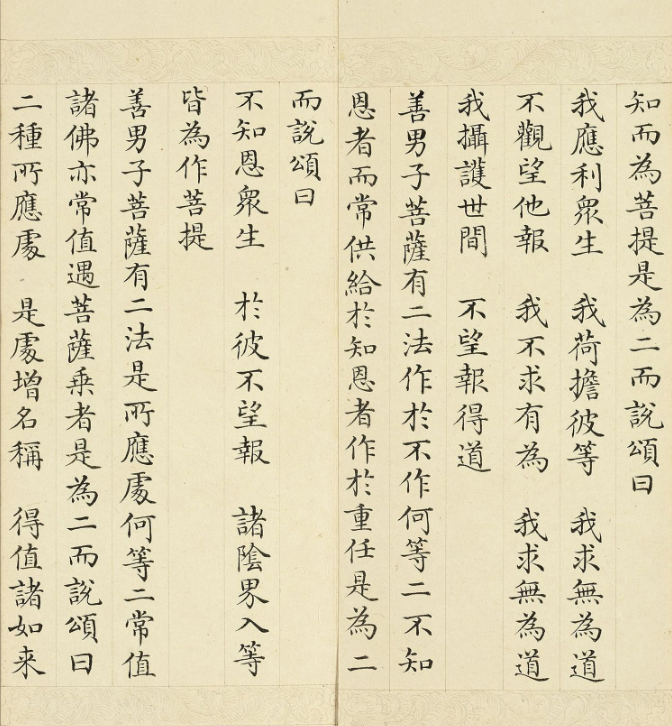 知而為菩提是為二而說頌曰
我應利眾生　我荷擔彼等　我求無為道
不觀望他報　我不求有為　我求無為道
我攝護世間　不望報得道
善男子菩薩有二法作於不作何等二不知
恩者而常供給於知恩者作於重任是為二
而說頌曰
不知恩眾生　於彼不望報　諸陰界入等
皆為作菩提
善男子菩薩有二法是所應處何等二常值
諸佛亦常值遇菩薩乘者是為二而說頌曰
二種所應處　是處增名稱　得值諸如来